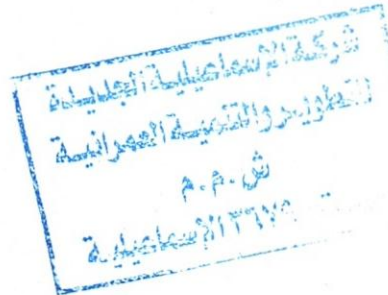 شركة الإسماعيلية الجديدة
للتطوير والتنمية العمرانية
ش.م.م
٣٦٧٩ الإسماعيلية